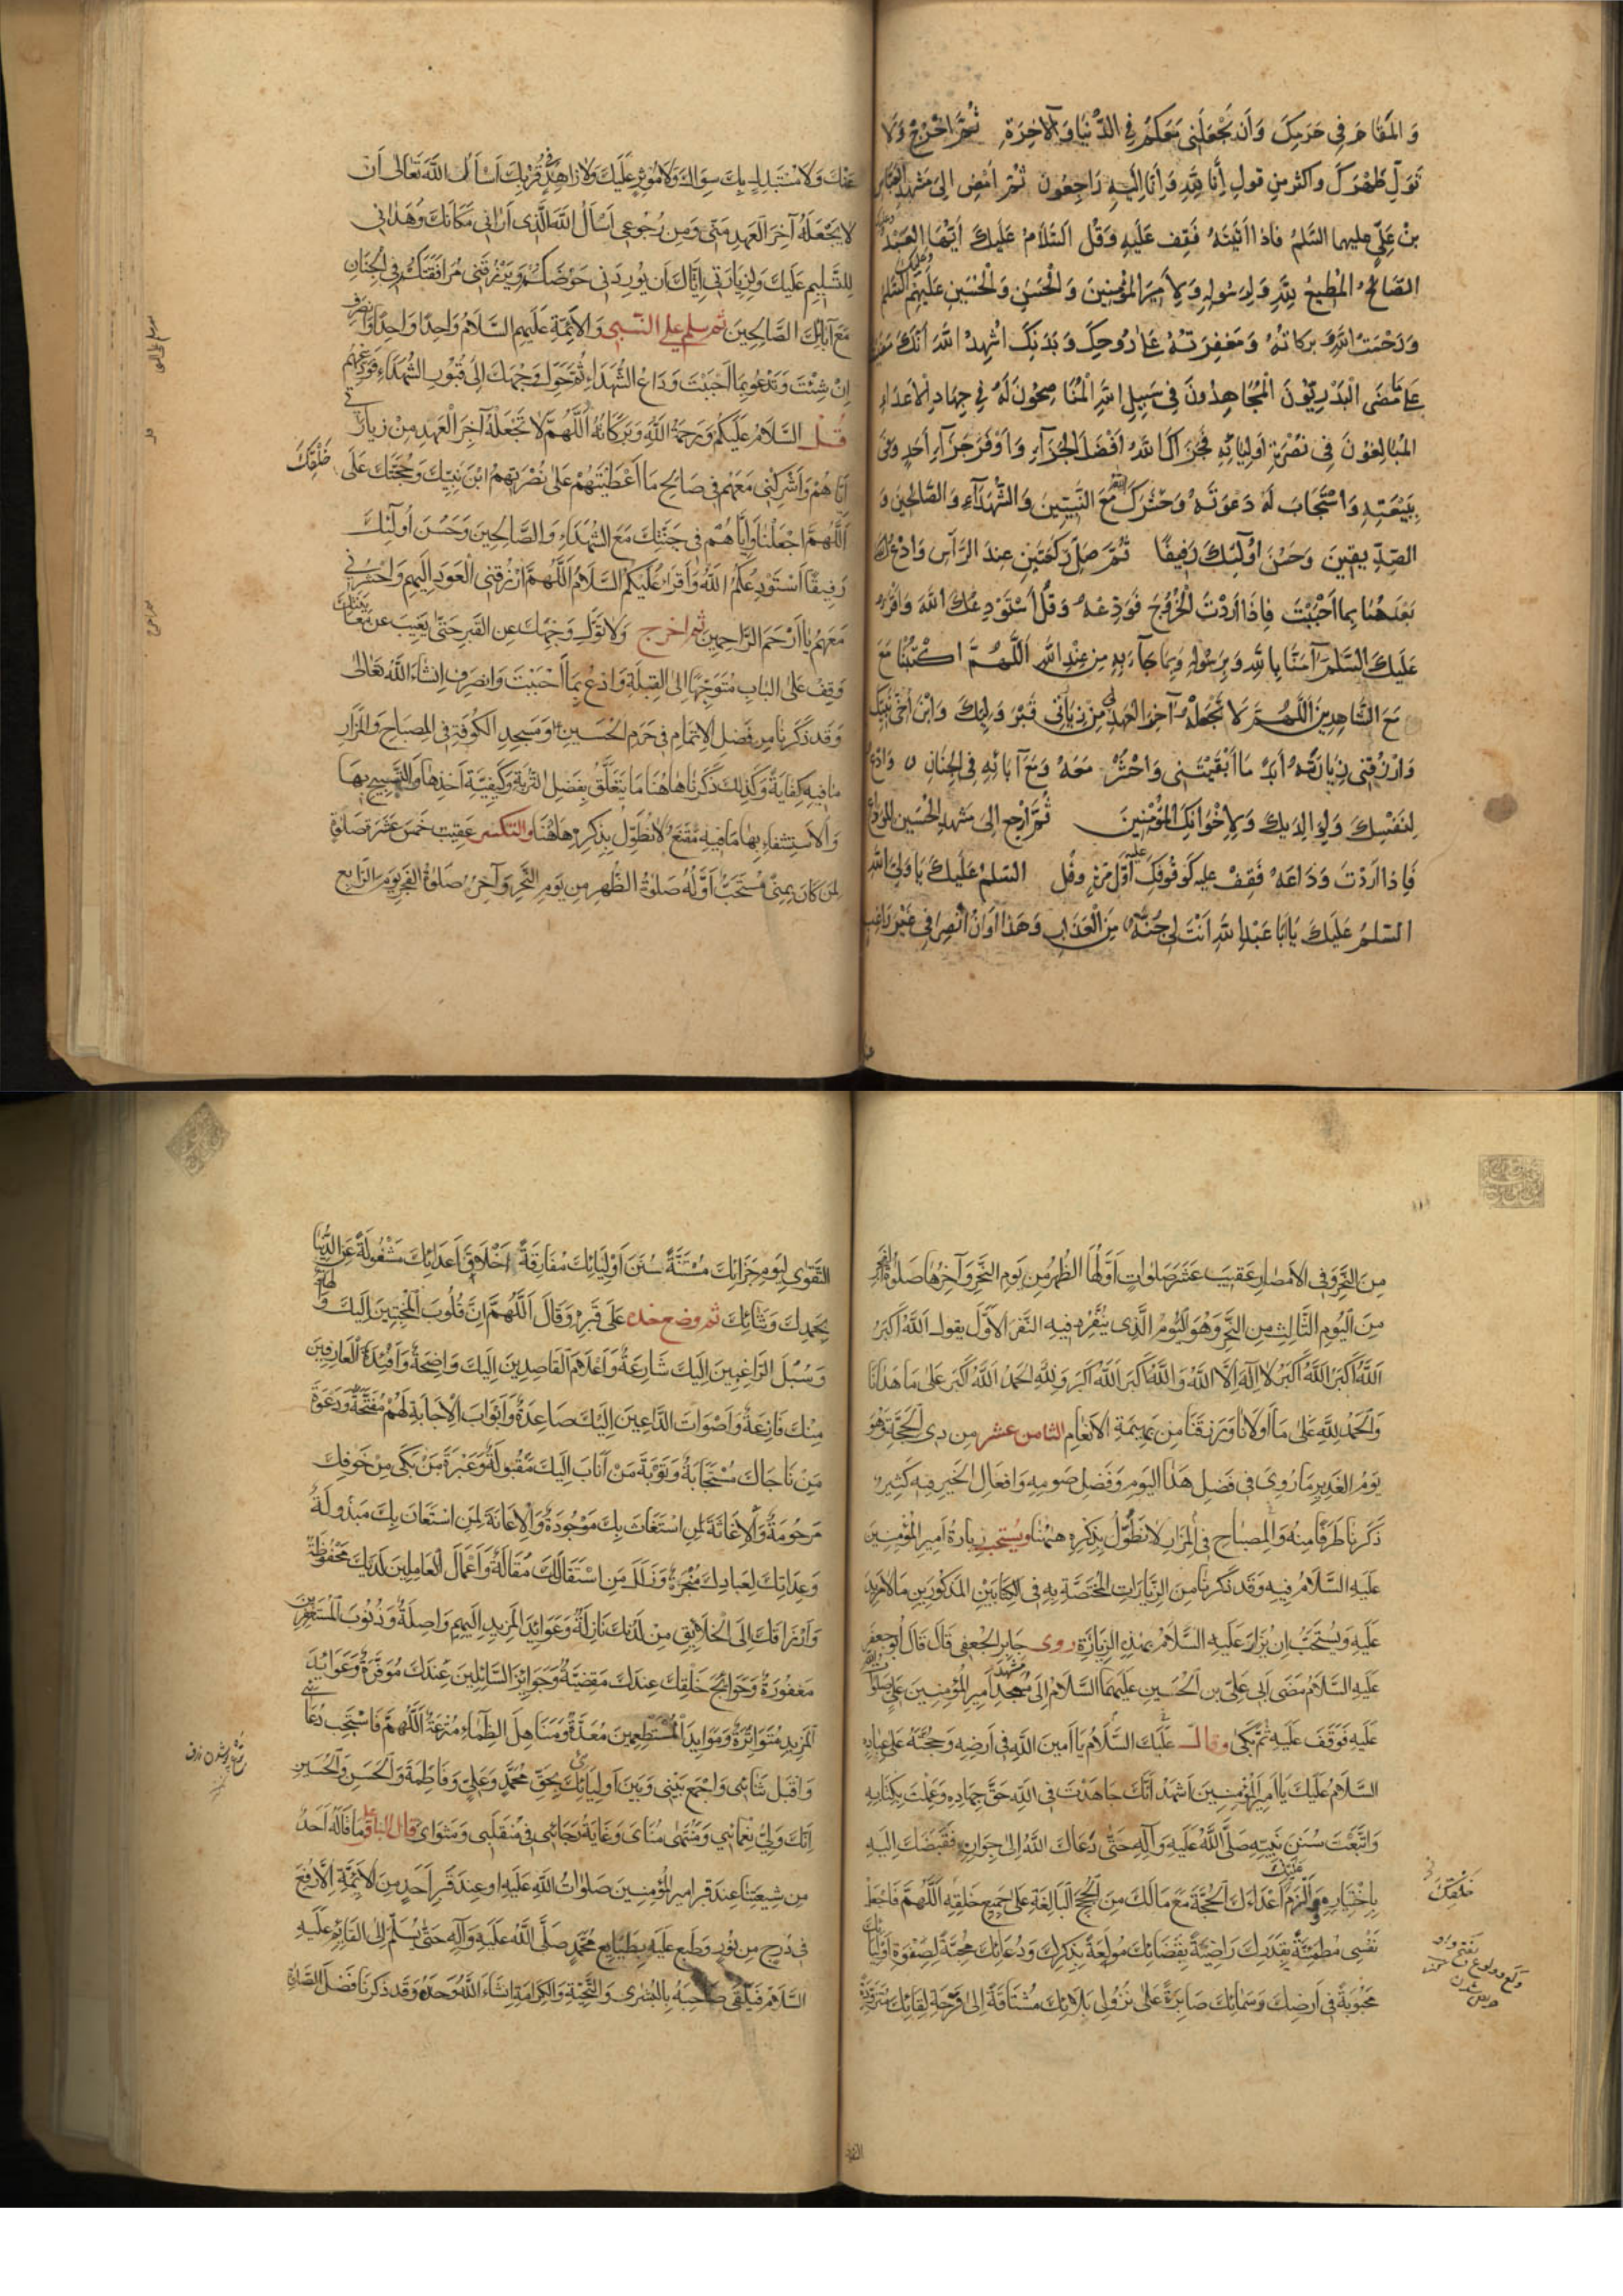 وَالْمَقَامَ فِي حَرَمِكَ وَأَنْ تَجْعَلَنِي مَعَكُمْ فِي الدُّنْيَا وَالْآخِرَةِ ثُمَّ اخْرُجْ وَلَا
تُوَلِّ ظَهْرَكَ وَاكثر مِن قولِ إِنَّا لِلَّهِ وَإِنَّا إِلَيْهِ رَاجِعُونَ ثُمَّ امْضِ إِلَى مَشْهَدِ العَبَّاسِ
بْنِ عَلِيٍّ عليهما السَّلمُ فَاذا اَتَيْتَهُ فَقِف عَلَيْهِ وَقُل اَلسَّلَامُ عَلَيْكَ اَيُّهَا الْعَبْدُ
الصَّالِحُ الْمُطِيعُ لِلَّهِ وَلِرَسُولِهِ وَلِأَمِيرِ الْمُؤْمِنِينَ وَالْحَسَنِ وَالْحُسَيْنِ عَلَيْهِمُ السَّلمُ
وَرَحْمَتُ اللَّهِ وَبَرَكَاتُهُ وَمَغْفِرَتُهُ عَلَى رُوحِكَ وَبَدَنِكَ اُشْهِدُ اللَّهَ اَنَّكَ مَضَيْتَ
عَلَى مَا مَضَى الْبَدْرِيُّونَ الْمُجَاهِدُونَ فِي سَبِيلِ اللَّهِ الْمُنَاصِحُونَ لَهُ فِي جِهَادِ الْأَعْدَاءِ
الْمُبَالِغُونَ فِي نُصْرَةِ اَوْلِيَائِهِ فَجَزَاكَ اللَّهُ اَفْضَلَ الْجَزَاءِ وَاَوْفَرَ جَزَاءِ اَحَدٍ وَفَى
بِبَيْعَتِهِ وَاسْتَجَابَ لَهُ دَعْوَتَهُ وَحَشَرَكَ اللَّهُ مَعَ النَّبِيِّينَ وَالشُّهَدَاءِ وَالصَّالِحِينَ وَ
الصِّدِّيقِينَ وَحَسُنَ اُولٰئِكَ رَفِيقًا ثُمَّ صَلِّ رَكْعَتَيْنِ عِنْدَ الرَّأسِ وَادْعُ اللَّهَ
بَعْدَهُمَا بِمَا اَحْبَبْتَ فَاِذَا اَرَدْتَ الْخُرُوجَ فَوَدِّعْهُ وَقُلْ اَسْتَوْدِعُكَ اللَّهَ وَاقْرَءُ
عَلَيْكَ السَّلمَ آمَنَّا بِاللَّهِ وَبِرَسُولِهِ وَبِمَا جَاءَ بِهِ مِنْ عِنْدِ اللَّهِ اَللَّهُمَّ اكْتُبْنَا مَعَ
مَعَ الشَّاهِدِينَ اَللَّهُمَّ لَا تَجْعَلْهُ آخِرَ الْعَهْدِ مِنْ زِيَارَتِي قَبْرَ وَلِيِّكَ وَابْنِ اَخِي نَبِيِّكَ
وَارْزُقْنِي زِيَارَتَهُ اَبَدًا مَا اَبْقَيْتَنِي وَاحْشُرْنِي مَعَهُ وَمَعَ آبَائِهِ فِي الْجِنَانِ وَادْعُ
لِنَفْسِكَ وَلِوَالِدَيْكَ وَلِاِخْوَانِكَ الْمُؤْمِنِينَ ثُمَّ ارْجِع اِلَى مَشْهَدِ الْحُسَيْنِ لِلْوَدَاعِ
فَاِذَا اَرَدْتَ وَدَاعَهُ فَقِفْ عليه كَوُقُوفِكَ عليه اَوَّلَ مَرَّةٍ وَقُل السَّلمُ عَلَيْكَ يَا وَلِيَّ اللَّهِ
السَّلمُ عَلَيْكَ يَا اَبَا عَبْدِ اللَّهِ اَنْتَ لِي جُنَّةٌ مِنَ الْعَذَابِ وَهَذَا اَوَانُ انْصِرَافِي غَيْرَ رَاغِبٍ
عَنْكَ وَلَا مُسْتَبْدِلٍ بِكَ سِوَاكَ وَلَا مُؤْثِرٍ عَلَيْكَ وَلَا زَاهِدٍ فِي قُرْبِكَ اَسْأَلُ اللَّهَ تَعَالَى اَنْ
لَا يَجْعَلَهُ آخِرَ الْعَهْدِ مِنِّي وَمِنْ رُجُوعِي اَسْأَلُ اللَّهَ الَّذِي اَرَانِي مَكَانَكَ وَهَدَانِي
لِلتَّسْلِيمِ عَلَيْكَ وَلِزِيَارَتِي اِيَّاكَ اَنْ يُورِدَنِي حَوْضَكُمْ وَيَرْزُقَنِي مُرَافَقَتَكَ فِي الْجِنَانِ
مَعَ آبَائِكَ الصَّالِحِينَ ثم سلم على النبي وَالْاَئِمَّةِ عَلَيْهِمُ السَّلَامُ وَاحِدًا وَاحِدًا وَانصرف
اِنْ شِئْتَ وَتَدْعُو بِمَا اَحْبَبْتَ وَدَاعُ الشُّهَدَاءِ ثُمَّ حَوِّلْ وَجْهَكَ اِلَى قُبُورِ الشُّهَدَاءِ فَوَدِّعْهُمْ
قُلْ السَّلَامُ عَلَيْكُمْ وَرَحْمَةُ اللَّهِ وَبَرَكَاتُهُ اَللَّهُمَّ لَا تَجْعَلْهُ آخِرَ الْعَهْدِ مِنْ زِيَارَتِي
اِيَّاهُمْ وَاَشْرِكْنِي مَعَهُمْ فِي صَالِحِ مَا اَعْطَيْتَهُمْ عَلَى نُصْرَتِهِمُ ابْنَ نَبِيِّكَ وَحُجَّتَكَ عَلَى خَلْقِكَ
اَللَّهُمَّ اجْعَلْنَا وَاِيَّاهُمْ فِي جَنَّتِكَ مَعَ الشُّهَدَاءِ وَالصَّالِحِينَ وَحَسُنَ اُولٰئِكَ
رَفِيقًا اَسْتَوْدِعُكُمُ اللَّهَ وَاَقْرَءُ عَلَيْكُمُ السَّلَامَ اَللَّهُمَّ ارْزُقْنِي الْعَوْدَ اِلَيْهِمْ وَاحْشُرْنِي
مَعَهُمْ يَا اَرْحَمَ الرَّاحِمِينَ ثم اخرج وَلَا تُوَلِّ وَجْهَكَ عَنِ الْقَبْرِ حَتَّى يَغِيبَ عَنْ مُعَايَنَتِكَ
وَقِفْ عَلَى الْبَابِ مُتَوَجِّهًا اِلَى الْقِبْلَةِ وَادْعُ بِمَا اَحْبَبْتَ وَانْصَرِفْ اِنْشَاءَ اللَّهُ تَعَالَى
وَقَدْ ذَكَرْنَا مِنْ فَضْلِ الْاِتْمَامِ فِي حَرَمِ الْحُسَيْنِ وَمَسْجِدِ الْكُوفَةِ فِي الْمِصْبَاحِ وَالْمَزَارِ
مَا فِيهِ كِفَايَةٌ وَكَذٰلِكَ ذَكَرْنَا هَاهُنَا مَا يَتَعَلَّقُ بِفَضْلِ التُّرْبَةِ وَكَيْفِيَّةِ اَخْذِهَا وَالتَّسْبِيحِ بِهَا
وَالْاِسْتِشْفَاءِ بِهَا مَا فِيهِ مُقْنِعٌ لَا نُطَوِّلُ بِذِكْرِهِ هَاهُنَا والتكبير عَقِيبَ خَمْسَ عَشْرَةَ صَلٰوةً
لِمَنْ كَانَ بِمِنًى مُسْتَحَبٌّ اَوَّلُهُ صَلٰوةُ الظُّهْرِ مِنْ يَوْمِ النَّحْرِ وَآخِرُهُ صَلٰوةُ الْفَجْرِ يَوْمَ الرَّابِعِ
مِنَ النَّحْرِ وَفِي الْاَمْصَارِ عَقِيبَ عَشْرِ صَلَوَاتٍ اَوَّلُهَا الظُّهْرُ مِنْ يَوْمِ النَّحْرِ وَآخِرُهَا صَلٰوةُ الْفَجْرِ
مِنَ الْيَوْمِ الثَّالِثِ مِنَ النَّحْرِ وَهُوَ الْيَوْمُ الَّذِي يُنْفَرُ فِيهِ النَّفْرَ الْاَوَّلَ يَقُولُ اَللَّهُ اَكْبَرُ
اَللَّهُ اَكْبَرُ اَللَّهُ اَكْبَرُ لَا اِلٰهَ اِلَّا اللَّهُ وَاللَّهُ اَكْبَرُ اَللَّهُ اَكْبَرُ وَلِلَّهِ الْحَمْدُ اَللَّهُ اَكْبَرُ عَلَى مَا هَدَانَا
وَالْحَمْدُ لِلَّهِ عَلَى مَا اَوْلَانَا وَرَزَقَنَا مِنْ بَهِيمَةِ الْاَنْعَامِ الثامن عشر مِنْ ذِي الْحَجَّةِ وَهُوَ
يَوْمُ الْغَدِيرِ مَا رُوِيَ فِي فَضْلِ هَذَا الْيَوْمِ وَفَضْلِ صَوْمِهِ وَاَفْعَالِ الْخَيْرِ فِيهِ كَثِيرٌ
ذَكَرْنَا طَرَفًا مِنْهُ وَالْمِصْبَاحِ فِي الْمَزَارِ لَا نُطَوِّلُ بِذِكْرِهِ هٰهُنَا ويستحب زِيَارَةُ اَمِيرِ الْمُؤْمِنِينَ
عَلَيْهِ السَّلَامُ فِيهِ وَقَدْ ذَكَرْنَا مِنَ الزِّيَارَاتِ الْمُخْتَصَّةِ بِهِ فِي الْكِتَابَيْنِ الْمَذْكُورَيْنِ مَا لَا مَزِيدَ
عَلَيْهِ وَيُسْتَحَبُّ اَنْ يُزَارَ عَلَيْهِ السَّلَامُ بِهٰذِهِ الزِّيَارَةِ روى جَابِرٌ الْجُعْفِيُّ قَالَ قَالَ اَبُو جَعْفَرٍ
عَلَيْهِ السَّلَامُ مَضَى اَبِي عَلِيُّ بْنُ الْحُسَيْنِ عَلَيْهِمَا السَّلَامُ اِلَى مَشْهَدِ اَمِيرِ الْمُؤْمِنِينَ عَلِيٍّ صَلَوَاتُ اللَّهِ
عَلَيْهِ فَوَقَفَ عَلَيْهِ ثُمَّ بَكَى وقال السَّلَامُ عَلَيْكَ يَا اَمِينَ اللَّهِ فِي اَرْضِهِ وَحُجَّتَهُ عَلَى عِبَادِهِ
السَّلَامُ عَلَيْكَ يَا اَمِيرَ الْمُؤْمِنِينَ اَشْهَدُ اَنَّكَ جَاهَدْتَ فِي اللَّهِ حَقَّ جِهَادِهِ وَعَمِلْتَ بِكِتَابِهِ
وَاتَّبَعْتَ سُنَنَ نَبِيِّهِ صَلَّى اللَّهُ عَلَيْهِ وَآلِهِ حَتَّى دَعَاكَ اللَّهُ اِلَى جِوَارِهِ فَقَبَضَكَ اِلَيْهِ
بِاخْتِيَارِهِ وَاَلْزَمَ اَعْدَاءَكَ الْحُجَّةَ مَعَ مَا لَكَ مِنَ الْحُجَجِ الْبَالِغَةِ عَلَى جَمِيعِ خَلْقِهِ اَللَّهُمَّ فَاجْعَلْ
نَفْسِي مُطْمَئِنَّةً بِقَدَرِكَ رَاضِيَةً بِقَضَائِكَ مُولَعَةً بِذِكْرِكَ وَدُعَائِكَ مُحِبَّةً لِصَفْوَةِ اَوْلِيَائِكَ
مَحْبُوبَةً فِي اَرْضِكَ وَسَمَائِكَ صَابِرَةً عَلَى نُزُولِ بَلَائِكَ مُشْتَاقَةً اِلَى فَرْحَةِ لِقَائِكَ مُتَزَوِّدَةً
التَّقْوَى لِيَوْمِ جَزَائِكَ مُسْتَنَّةً بِسُنَنِ اَوْلِيَائِكَ مُفَارِقَةً اَخْلَاقَ اَعْدَائِكَ مَشْغُولَةً عَنِ الدُّنْيَا
بِحَمْدِكَ وَثَنَائِكَ ثم وضع خده عَلَى قَبْرِهِ وَقَالَ اَللَّهُمَّ اِنَّ قُلُوبَ الْمُخْبِتِينَ اِلَيْكَ وَالِهَةٌ
وَسُبُلَ الرَّاغِبِينَ اِلَيْكَ شَارِعَةٌ وَاَعْلَامَ الْقَاصِدِينَ اِلَيْكَ وَاضِحَةٌ وَاَفْئِدَةَ الْعَارِفِينَ
مِنْكَ فَازِعَةٌ وَاَصْوَاتَ الدَّاعِينَ اِلَيْكَ صَاعِدَةٌ وَاَبْوَابَ الْاِجَابَةِ لَهُمْ مُفَتَّحَةٌ وَدَعْوَةَ
مَنْ نَاجَاكَ مُسْتَجَابَةٌ وَتَوْبَةَ مَنْ اَنَابَ اِلَيْكَ مَقْبُولَةٌ وَعَبْرَةَ مَنْ بَكَى مِنْ خَوْفِكَ
مَرْحُومَةٌ وَالْاِغَاثَةَ لِمَنِ اسْتَغَاثَ بِكَ مَوْجُودَةٌ وَالْاِعَانَةَ لِمَنِ اسْتَعَانَ بِكَ مَبْذُولَةٌ
وَعِدَاتِكَ لِعِبَادِكَ مُنْجَزَةٌ وَزَلَلَ مَنِ اسْتَقَالَكَ مُقَالَةٌ وَاَعْمَالَ الْعَامِلِينَ لَدَيْكَ مَحْفُوظَةٌ
وَاَرْزَاقَكَ اِلَى الْخَلَائِقِ مِنْ لَدُنْكَ نَازِلَةٌ وَعَوَائِدَ الْمَزِيدِ اِلَيْهِمْ وَاصِلَةٌ وَذُنُوبَ الْمُسْتَغْفِرِينَ
مَغْفُورَةٌ وَحَوَائِجَ خَلْقِكَ عِنْدَكَ مَقْضِيَّةٌ وَجَوَائِزَ السَّائِلِينَ عِنْدَكَ مُوَفَّرَةٌ وَعَوَائِدَ
الْمَزِيدِ مُتَوَاتِرَةٌ وَمَوَائِدَ الْمُسْتَطْعِمِينَ مُعَدَّةٌ وَمَنَاهِلَ الظِّمَاءِ مُتْرَعَةٌ اَللَّهُمَّ فَاسْتَجِبْ دُعَائِي
وَاقْبَلْ ثَنَائِي وَاجْمَعْ بَيْنِي وَبَيْنَ اَوْلِيَائِي بِحَقِّ مُحَمَّدٍ وَعَلِيٍّ وَفَاطِمَةَ وَالْحَسَنِ وَالْحُسَيْنِ
اِنَّكَ وَلِيُّ نَعْمَائِي وَمُنْتَهَى مُنَايَ وَغَايَةُ رَجَائِي فِي مُنْقَلَبِي وَمَثْوَايَ قال الباقر مَا قَالَهُ اَحَدٌ
مِنْ شِيعَتِنَا عِنْدَ قَبْرِ اَمِيرِ الْمُؤْمِنِينَ صَلَوَاتُ اللَّهِ عَلَيْهِ اَوْ عِنْدَ قَبْرِ اَحَدٍ مِنَ الْاَئِمَّةِ اِلَّا رُفِعَ
فِي دُرْجٍ مِنْ نُورٍ وَطُبِعَ عَلَيْهِ بِطَابِعِ مُحَمَّدٍ صَلَّى اللَّهُ عَلَيْهِ وَآلِهِ حَتَّى يُسَلَّمَ اِلَى الْقَائِمِ عَلَيْهِ
السَّلَامُ فَيَلْقَى صَاحِبَهُ بِالْبُشْرَى وَالتَّحِيَّةِ وَالْكَرَامَةِ اِنْشَاءَ اللَّهُ وَحْدَهُ وَقَدْ ذَكَرْنَا فَضْلَ الصَّلٰوةِ